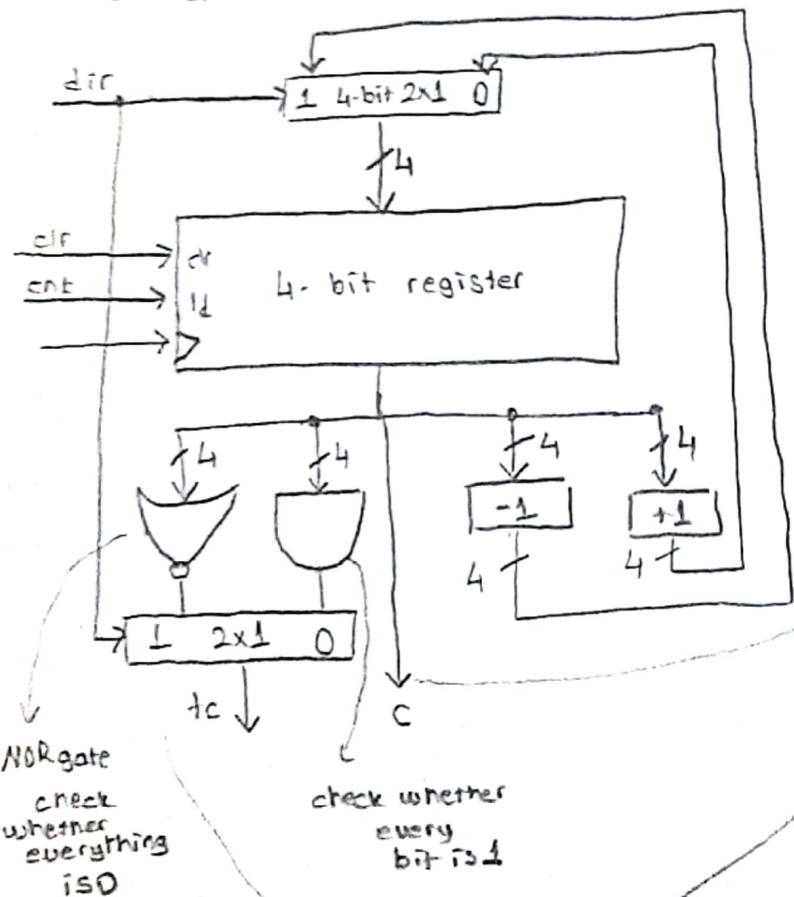 dir
1 4-bit 2x1 0
4
clr
clr
cnt
ld
4-bit register
4
4
4
4
-1
+1
4
4
1 2x1 0
tc
C
NOR gate
check
whether
everything
is 0
check whether
every
bit is 1